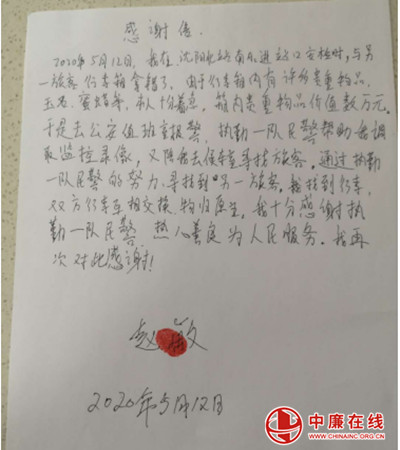 感谢信
2020年5月12日，我在沈阳北站南下进站口安检时，与另
一旅客行李箱拿错了。由于行李箱内有许多贵重物品，
玉石、蜜蜡等，本人十分着急，箱内贵重物品价值数万元。
于是去公安值班室报警，执勤一队民警帮助我调
取监控录像，又陪我去候车室寻找旅客。通过执勤
一队民警的努力，寻找到另一旅客。我找到行李，
双方行李互相交换，物归原主。我十分感谢执
勤一队民警，热心善良为人民服务。我再
次对此感谢！
赵敏
2020年5月12日
中廉在线
WWW.CHINAINC.ORG.CN